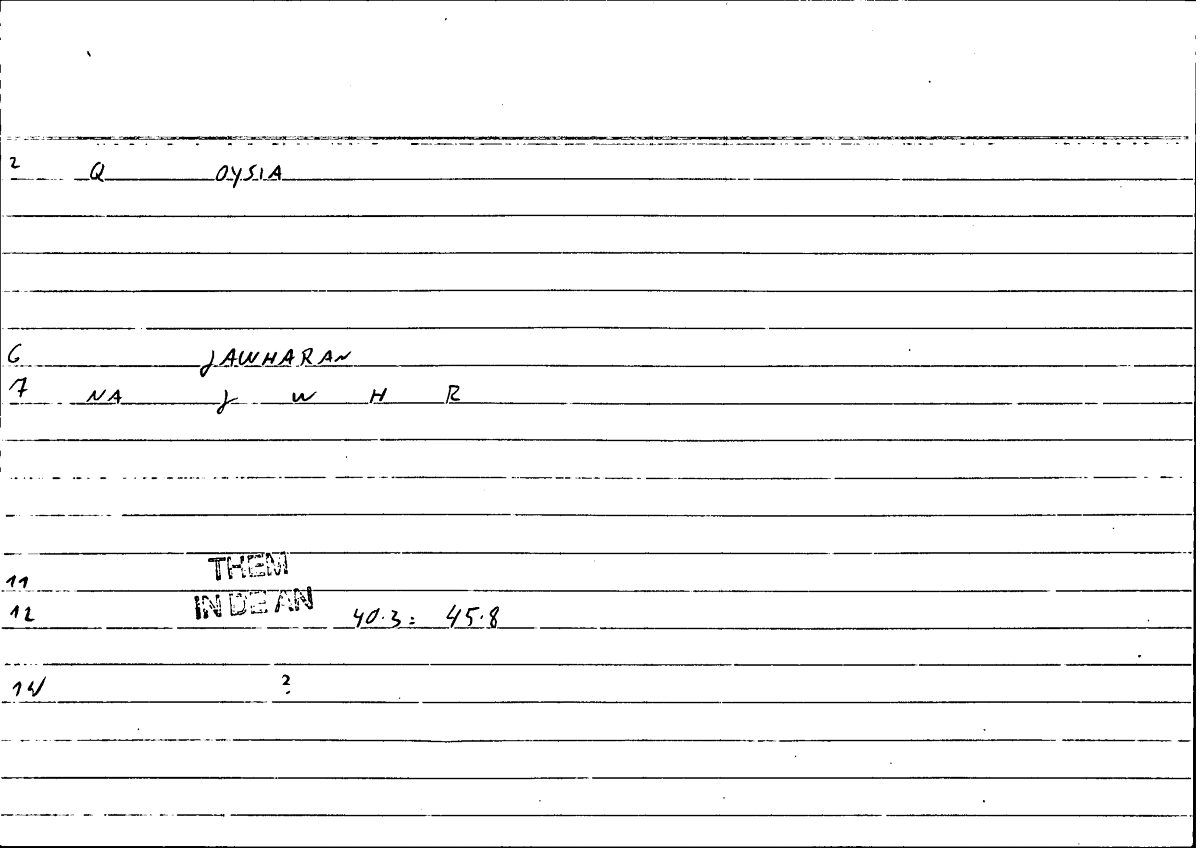 2 Q OYSIA
6 JAWHARAN
7 NA J W H R
11 THEM
12 IN DE AN 40.3 = 45.8
14 ?